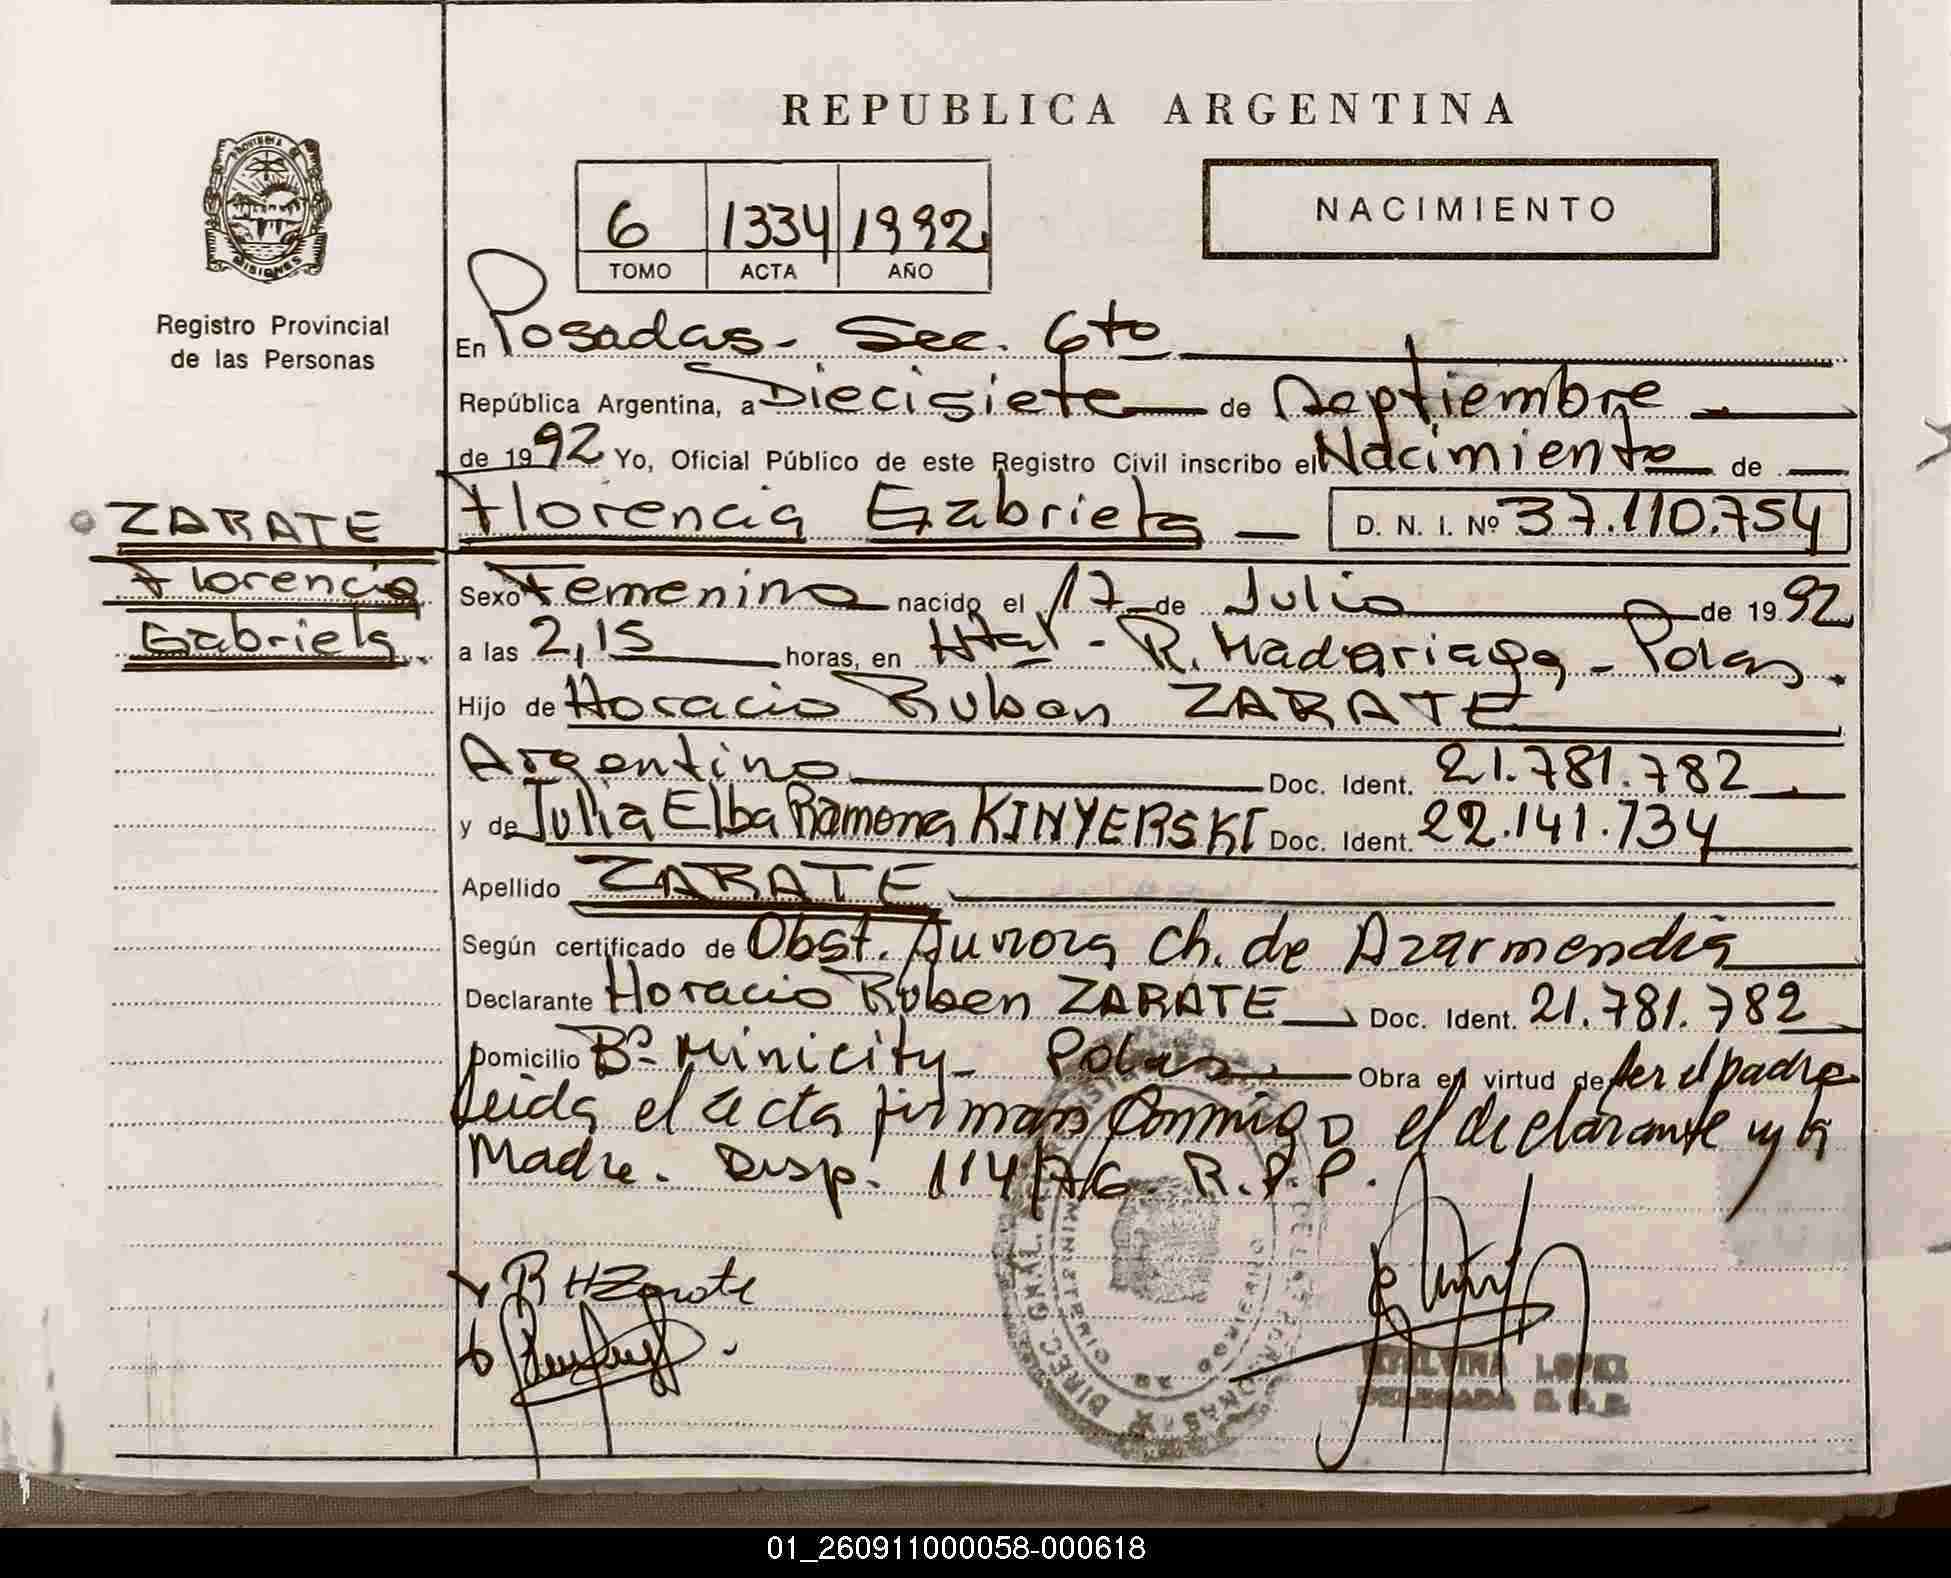 REPUBLICA ARGENTINA
NACIMIENTO
6 1334 1992
TOMO ACTA AÑO
PROVINCIA DE
MISIONES
Registro Provincial
de las Personas
En Posadas - Sec. 6to
República Argentina, a Diecisiete de Septiembre
de 1992 Yo, Oficial Público de este Registro Civil inscribo el Nacimiento de
ZARATE
Florencia
Gabriela
Florencia Gabriela D. N. I. Nº 37.110.754
Sexo Femenino nacido el 17 de Julio de 1992
a las 2,15 horas, en Htal - R. Madariaga - Pdas.
Hijo de Horacio Ruben ZARATE
Argentino Doc. Ident. 21.781.782
y de Julia Elba Ramona KINYERSKI Doc. Ident. 22.141.734
Apellido ZARATE
Según certificado de Obst. Aurora Ch. de Azarmendia
Declarante Horacio Ruben ZARATE Doc. Ident. 21.781.782
Domicilio Bº Minicity - Pdas Obra en virtud de ser el padre
leida el acta firman conmigo el declarante y la
Madre. Disp. 114/76 R.P.P.
R H Zarate
DIREC. GRAL.
MINISTERIO DE GOBIERNO
LOPEZ
DELEGADA R.P.P.
01_260911000058-000618